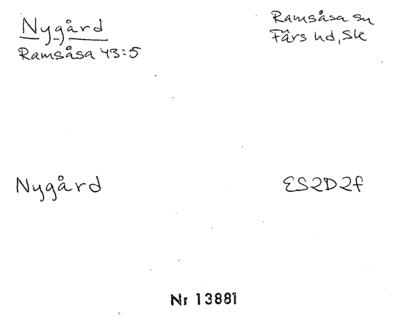 Nygård
Ramsåsa 43:5
Ramsåsa sn
Färs hd, Sk
Nygård
ES2D2f
Nr 13881